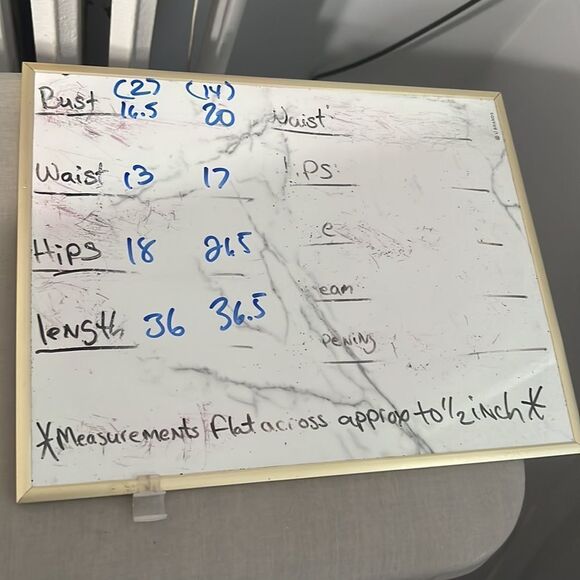 (2) (14)
Bust 16.5 20
Waist 13 17
Hips 18 21.5
length 36 36.5
Waist
ips
e
eam
pening
*Measurements flat across approx to 1/2 inch*